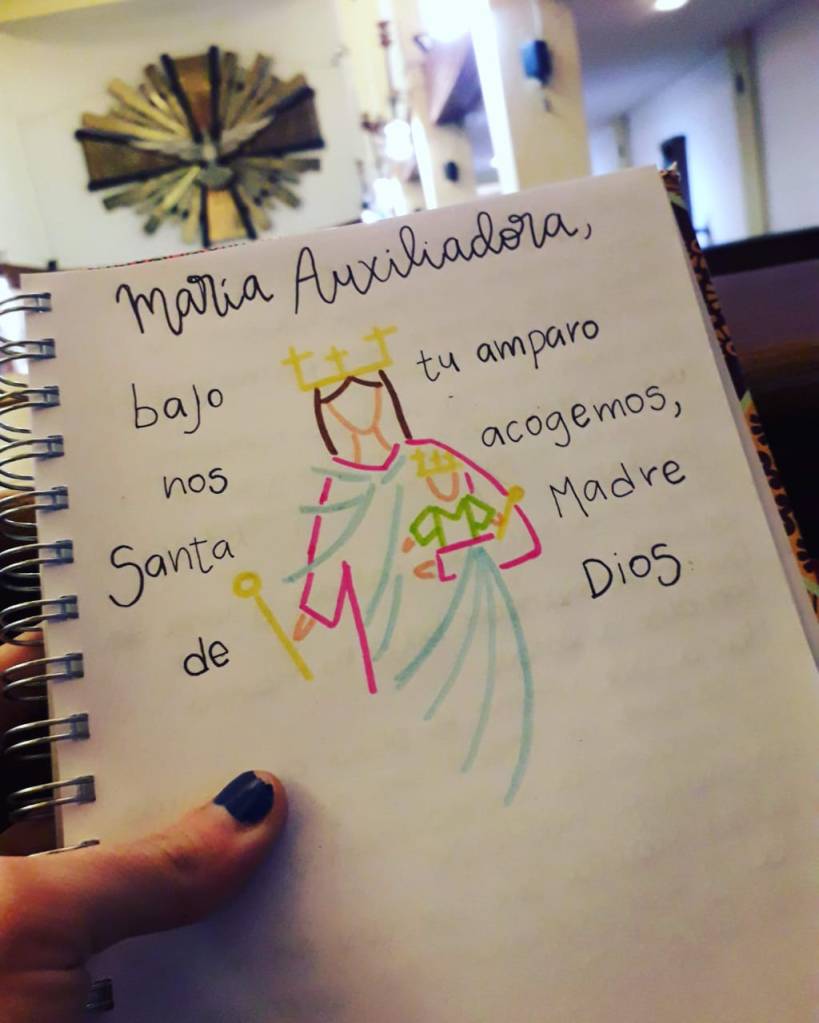 María Auxiliadora,
bajo tu amparo
nos acogemos,
Santa Madre
de Dios